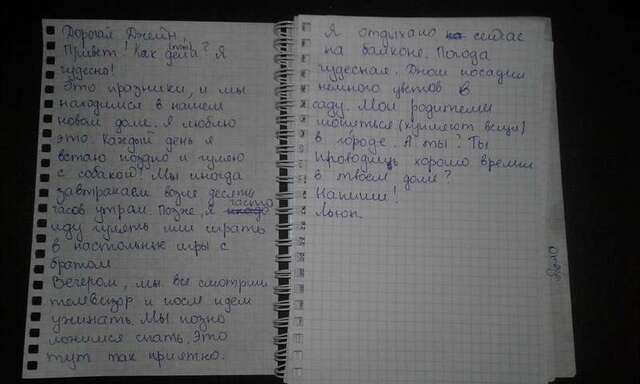 Дорогая Джейн,
Привет! Как дела (твои)? Я
чудесно!
Это празники, и мы
находимся в нашем
новом доме. Я люблю
это. Каждый день я
встаю поздно и гуляю
с собакой! Мы иногда
завтракаем возле десяти
часов утрам. Позже, я часто
иду гулять или играть
в настольные игры с
братом
Вечером, мы все смотрим
телевизор и после идем
ужинать. Мы поздно
ложимся спать. Это
тут так приятно.
Я отдыхаю на сейчас
на балконе. Погода
чудесная. Джош посадил
немного цветов в
саду. Мои родители
шопяться (купляют вещи)
в городе. А ты? Ты
проводишь хорошо время
в твоём доме?
Напиши!